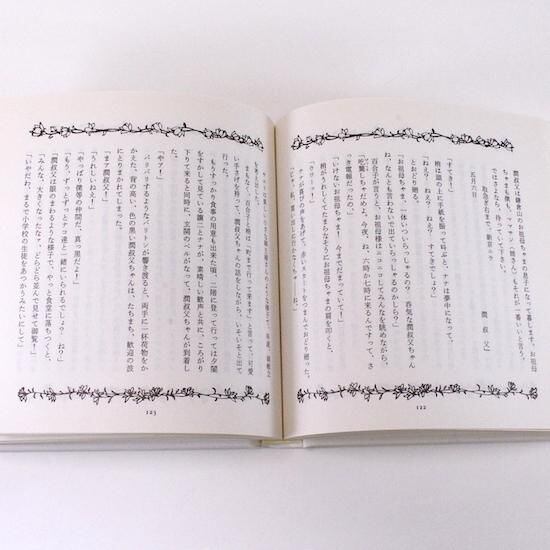 潤叔父は鎌倉山のお祖母ちゃまの息子になって暮します。お祖母
ちゃまも僕も、ママサン(姉さん)もそれが一番いいと言う。
ではさよなら、待っていて下さい。
取急ぎ右まで、新京ニテ
五月六日
潤叔父」
「すてき!」
梢は頭の上に手紙を振って叫ぶと、ナナは夢中になって、
「ねえ?ねえ?ねえ?すてきでしょ?」
とおどり廻る。
「お祖母ちゃま、一体いついらっしゃるのかしら?呑気な潤叔父ちゃん
ね、なんとも言わないで出ていらっしゃるんですもの」
百合子が言うと、お祖母様はニコニコしてみんなを眺めながら、
「吃驚しちゃだめよ、今夜、ね、六時か七時に来るんですって、さ
っき電報だったの」
「いけないお祖母ちゃま!今までだまっていて!」
梢がうれしくてたまらなそうにお祖母ちゃまの肩を叩くと、
ナナが喜びの声をあげて、赤いスカートをつまんでおどり廻った。
行ってくるわ」と言って、可愛
い手さげを持って、潤叔父ちゃんの話をしながら、いそいそと出て
行った。
もうすっかり食事の用意も出来た頃、二階に登って行っては夕闇
をすかして見ている譲二とナナが、素晴しい歓声と共に、ころがり
下りて来ると同時に、玄関のベルがなって、潤叔父ちゃんが到着し
た。
「やア!」
バリバリするようなバリトンが響き渡ると、両手に一杯荷物をか
かえた、背の高い、色の黒い潤叔父ちゃんは、たちまち、歓迎の波
にとりまかれてしまった。
「まア潤叔父!」
「うれしいねえ!」
「やっぱり僕等の仲間だ、真っ黒だよ!」
「もう、ずっとずっとナコ達と一緒にいられるでしょ?ね?」
潤叔父は眼のまわるような様子で、やっと食堂に落ちつくと、
「みんな、大きくなったなァ。どらどら並んで見せて御覧!」
「いやだわ、まるで小学校の生徒をあつかうみたいにして」
123
122